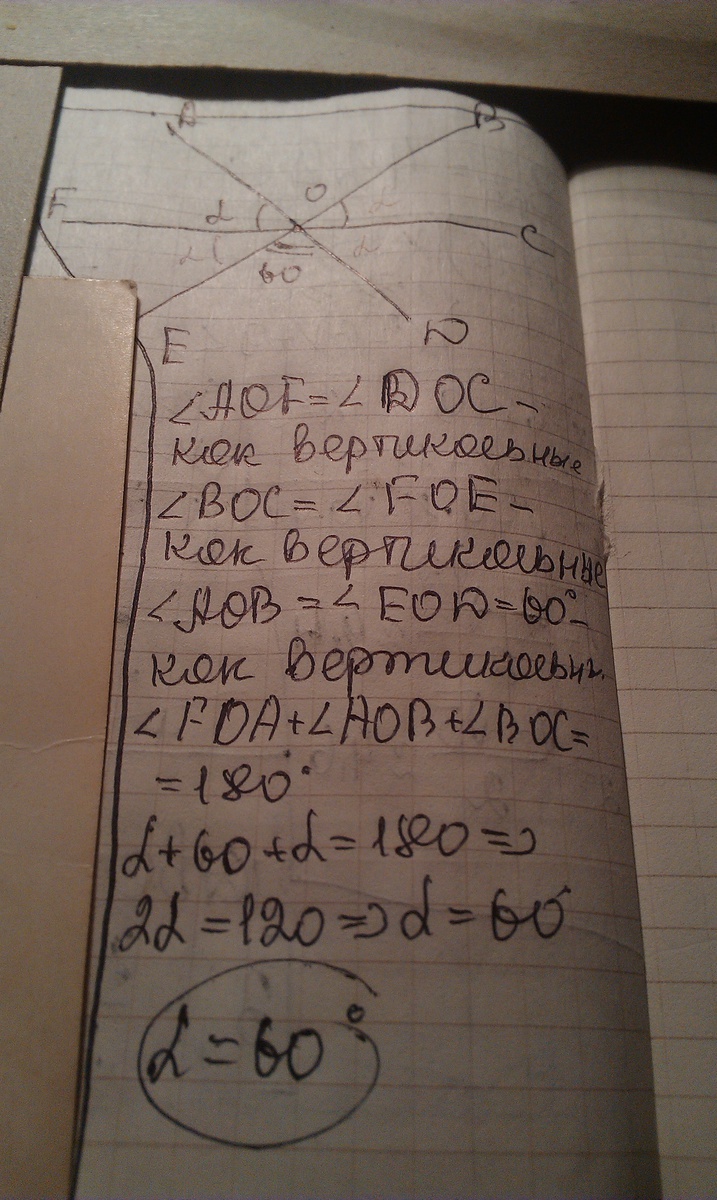 A B
F α O α C
α 60 α
E D
∠AOF = ∠DOC -
как вертикальные
∠BOC = ∠FOE -
как вертикальные
∠AOB = ∠EOD = 60° -
как вертикальн.
∠FOA + ∠AOB + ∠BOC =
= 180°
α + 60 + α = 180 =>
2α = 120 => α = 60°
α = 60°